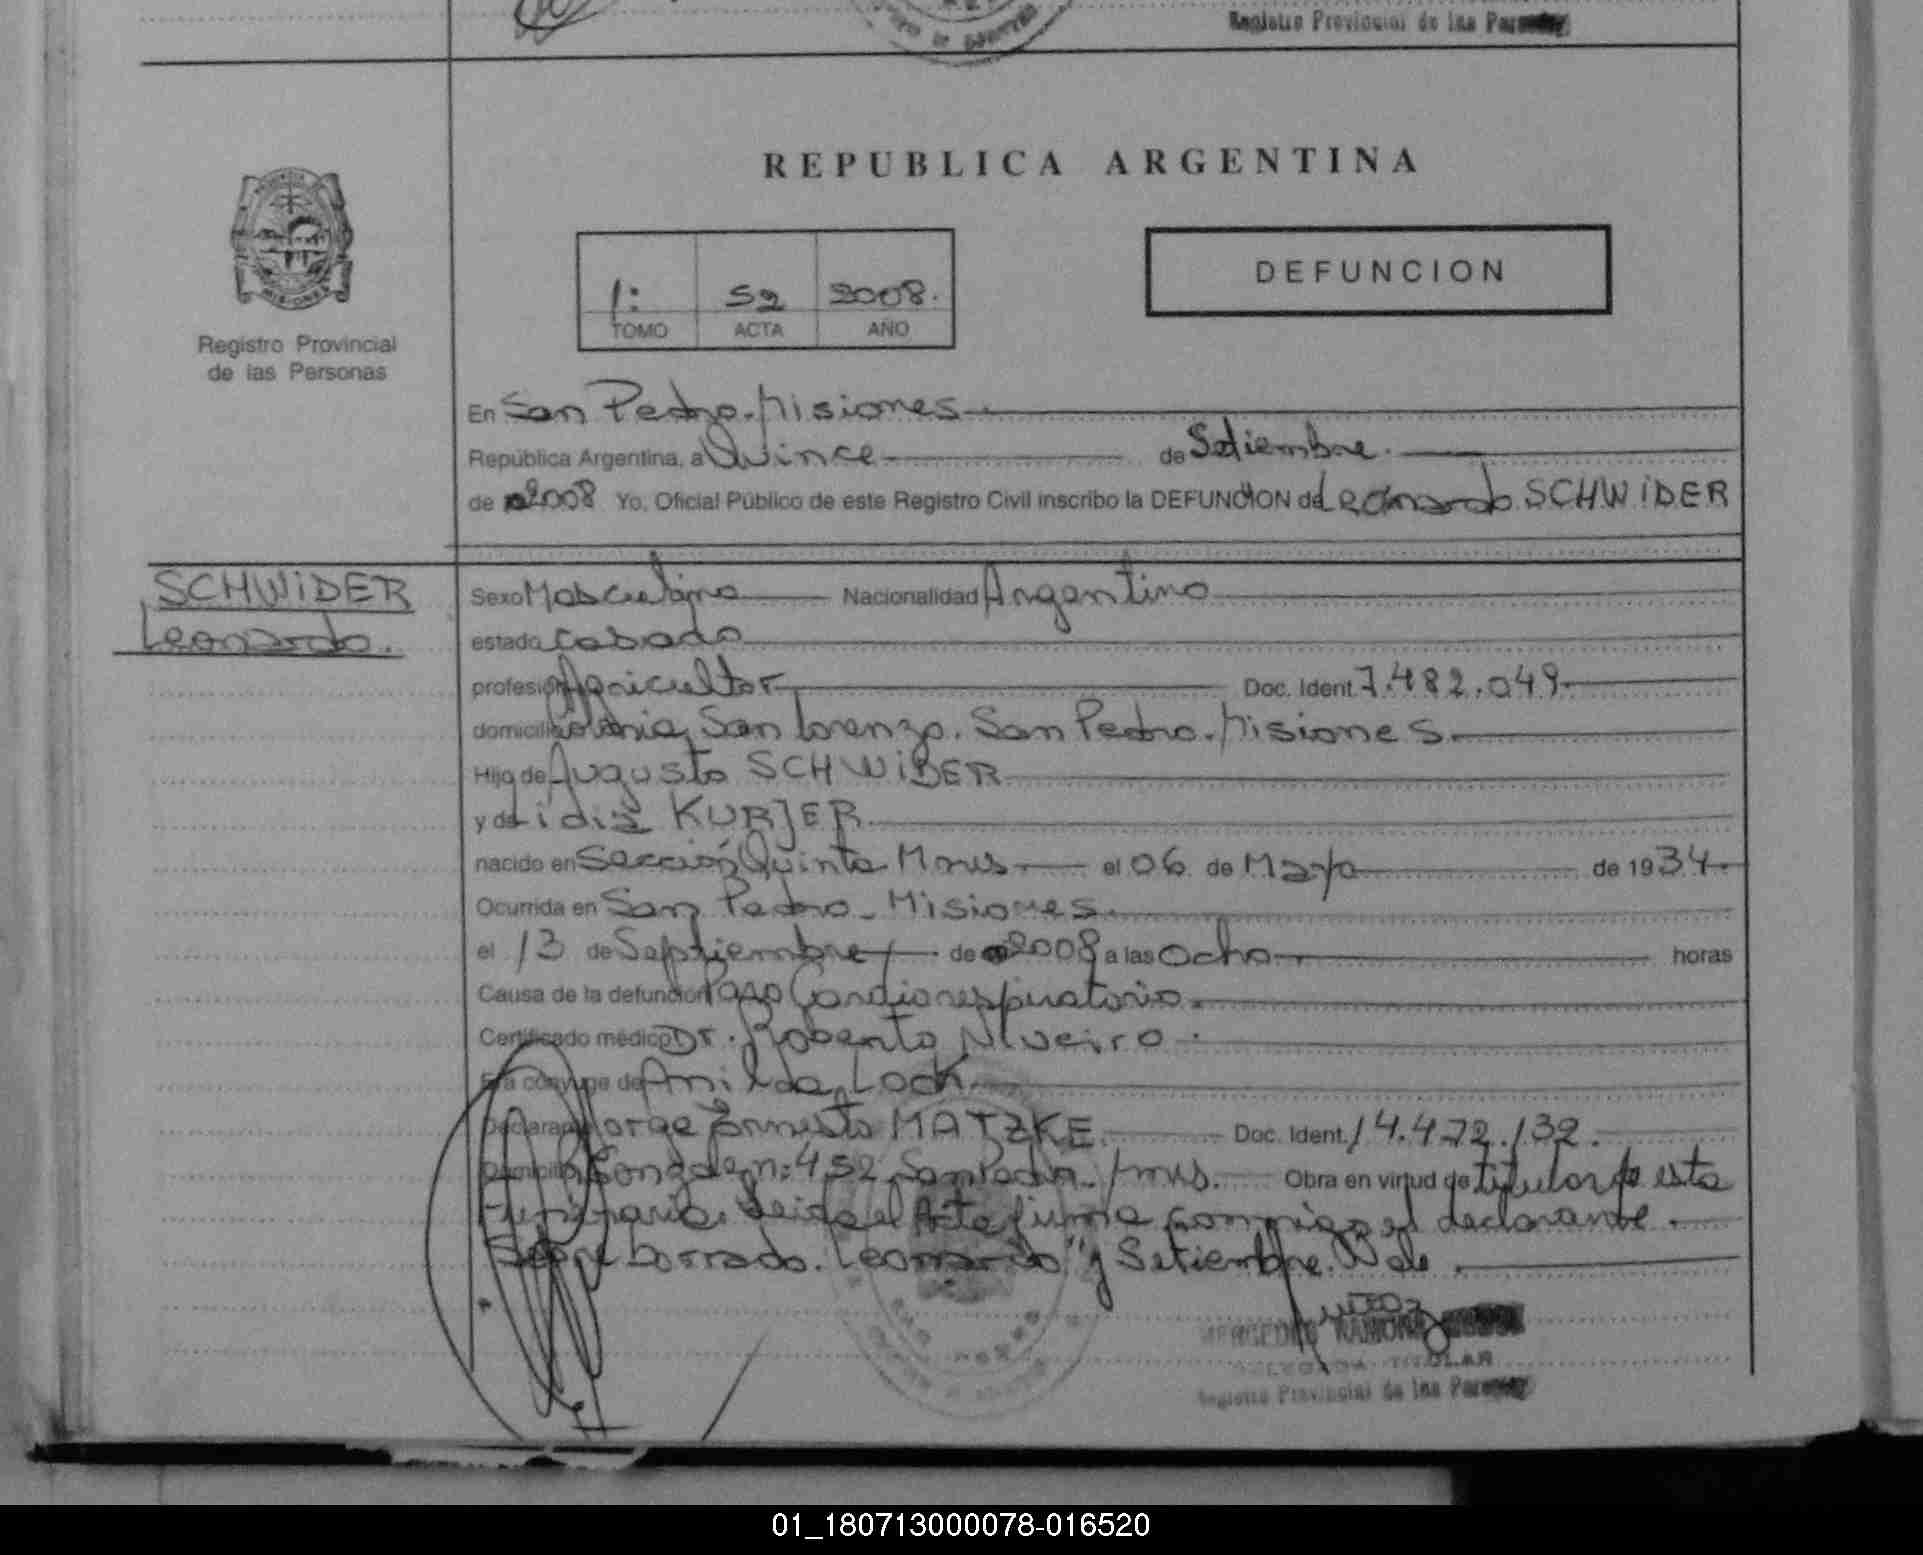 Registro Provincial de las
REPUBLICA ARGENTINA
1: 52 2008.
TOMO ACTA AÑO
DEFUNCION
MISIONES
Registro Provincial
de las Personas
En San Pedro. Misiones
República Argentina, a Quince de Setiembre.
de 2008 Yo, Oficial Público de este Registro Civil inscribo la DEFUNCION de Leonardo SCHWIDER
SCHWIDER
Leonardo.
Sexo Masculino Nacionalidad Argentino
estado casado
profesión Agricultor Doc. Ident. 7.482.049.
domicilio Colonia San Lorenzo. San Pedro. Misiones.
Hijo de Augusto SCHWIDER
y de Lidia KURJER
nacido en Sección Quinta Mnes el 06 de Mayo de 1934.
Ocurrida en San Pedro - Misiones.
el 13 de Septiembre de 2008 a las Ocho horas
Causa de la defunción Paro Cardiorespiratorio.
Certificado médico Dr. Roberto
Era cónyuge de Anilda Loch
Declarante Jorge Ernesto MATZKE Doc. Ident. 14.472.132.
Domicilio n: 452 San Pedro. Mnes. Obra en virtud de titular de esta
funeraria. Leida el Acta firma conmigo el declarante.
Sobre borrado. Leonardo "y Setiembre. Vale.
RAMONA
TITULAR
Registro Provincial de las
01_180713000078-016520